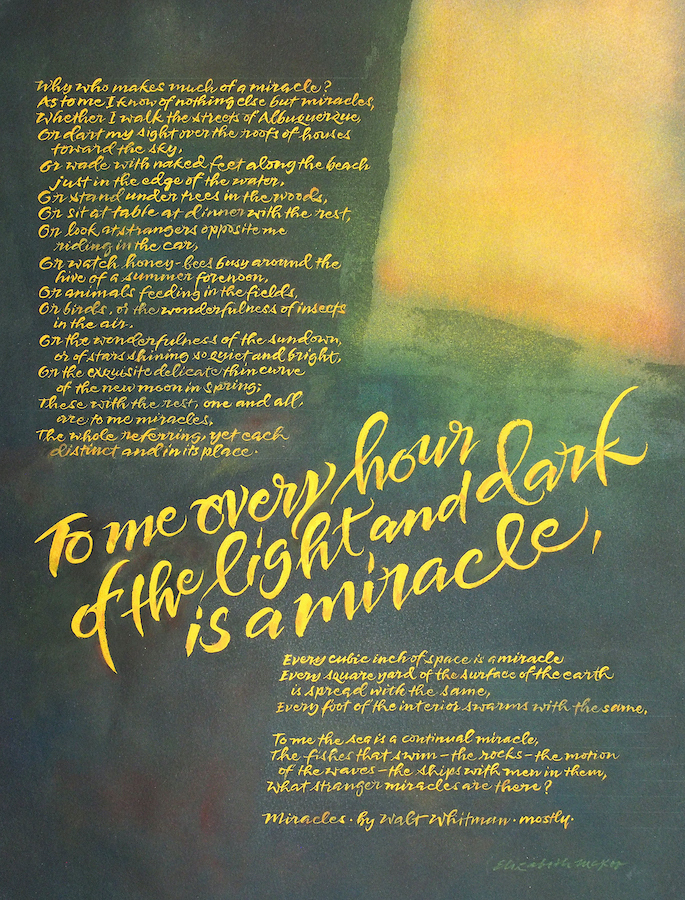 Why who makes much of a miracle?
As to me I know of nothing else but miracles,
Whether I walk the streets of Albuquerque,
Or dart my sight over the roofs of houses
toward the sky,
Or wade with naked feet along the beach
just in the edge of the water,
Or stand under trees in the woods,
Or sit at table at dinner with the rest,
Or look at strangers opposite me
riding in the car,
Or watch honey-bees busy around the
hive of a summer forenoon,
Or animals feeding in the fields,
Or birds, or the wonderfulness of insects
in the air,
Or the wonderfulness of the sundown,
or of stars shining so quiet and bright,
Or the exquisite delicate thin curve
of the new moon in spring;
These with the rest, one and all,
are to me miracles,
The whole referring, yet each
distinct and in its place.
To me every hour
of the light and dark
is a miracle,
Every cubic inch of space is a miracle
Every square yard of the surface of the earth
is spread with the same,
Every foot of the interior swarms with the same,
To me the sea is a continual miracle,
The fishes that swim–the rocks–the motion
of the waves–the ships with men in them,
What stranger miracles are there?
Miracles · by Walt Whitman · mostly·
Elizabeth